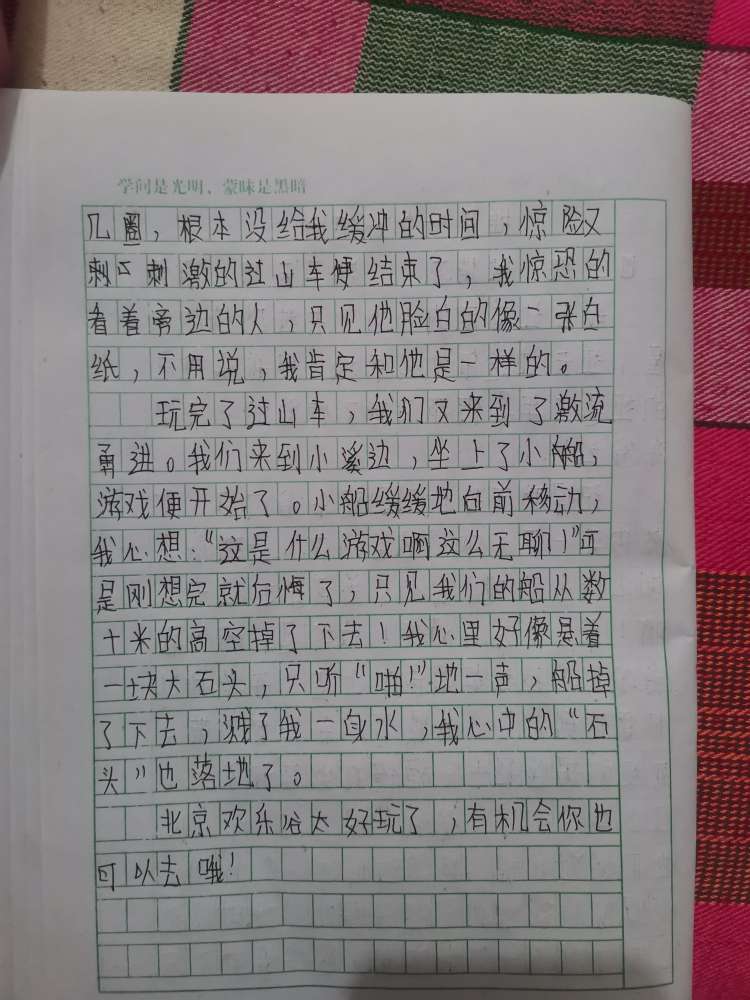 学问是光明、蒙昧是黑暗
几圈，根本没给我缓冲的时间，惊险又
刺激的过山车便结束了，我惊恐的
看着旁边的人，只见他脸白的像一张白
纸，不用说，我肯定和他是一样的。
玩完了过山车，我们又来到了激流
勇进。我们来到小溪边，坐上了小船，
游戏便开始了。小船缓缓地向前移动，
我心想：“这是什么游戏啊这么无聊！”可
是刚想完就后悔了，只见我们的船从数
十米的高空掉了下去！我心里好像悬着
一块大石头，只听“啪！”地一声，船掉
了下去，溅了我一身水，我心中的“石
头”也落地了。
北京欢乐谷太好玩了，有机会你也
可以去哦！